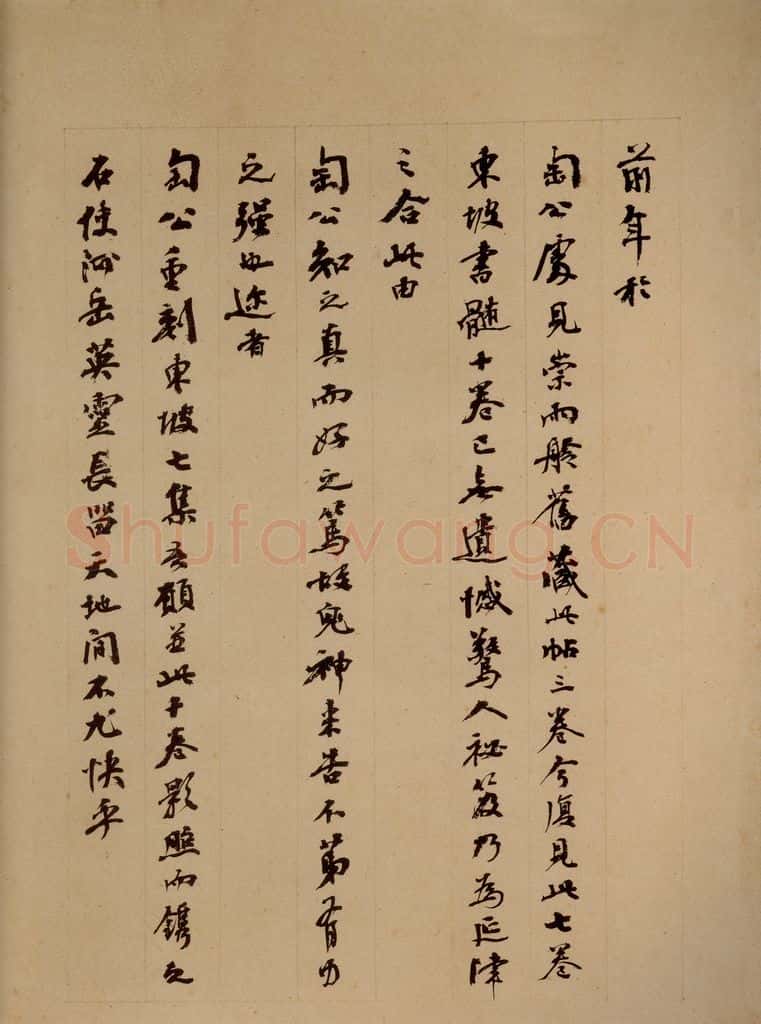 前年於
匋公處見崇雨舲舊藏此帖三卷今復見此七卷
東坡書髓十卷已無遺憾驚人祕笈乃為延津
之合此由
匋公知之真而好之篤故鬼神來告不第有力
之強也邇者
匋公重刻東坡七集吾願並此十卷影照而鐫之
石使河岳英靈長留天地間不尤快乎
Shufawang.CN